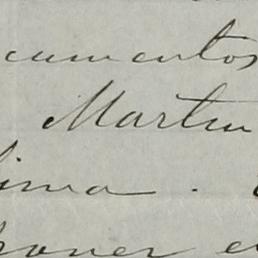 cumentos
Martin
lima.
poner e